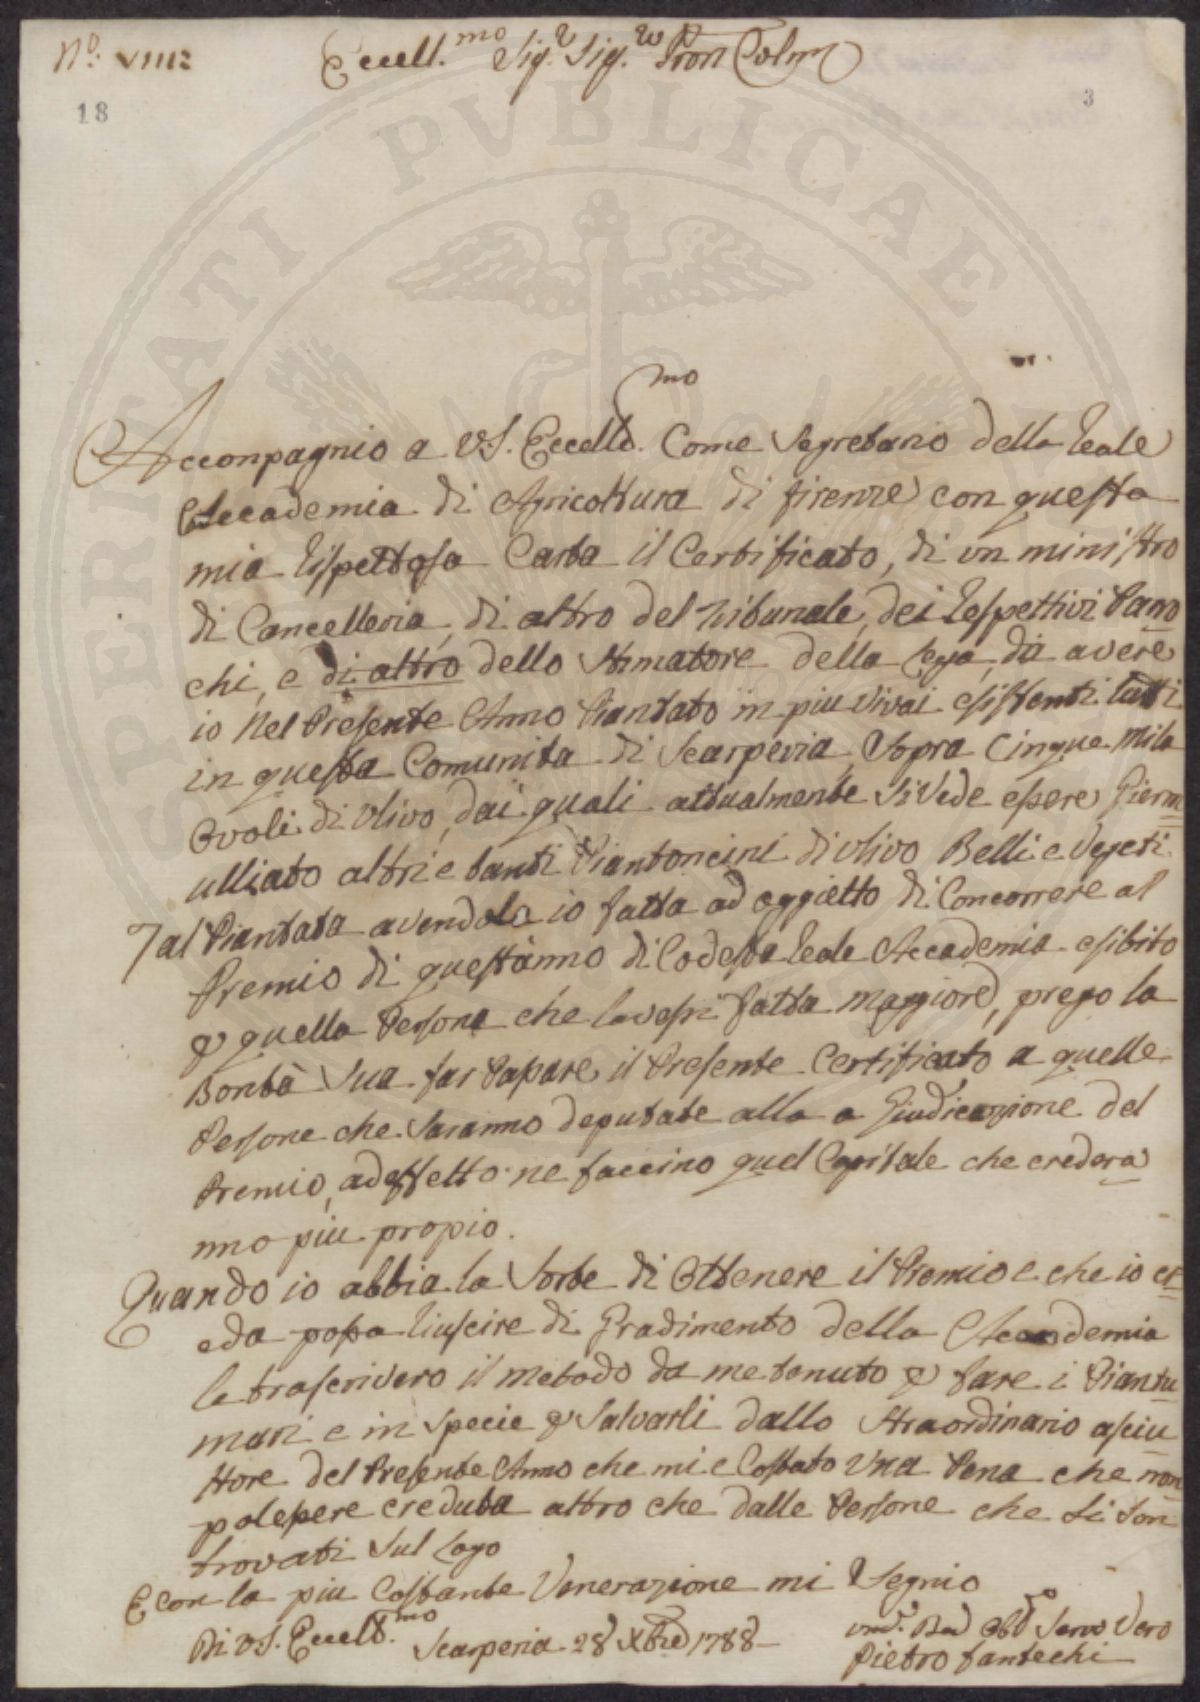 N.º VIIII
Eccell.mo Sig.r Sig.re Pron Colmo
18
3
Acconpagnio a VS. Eccellᵐᵒ. Come Segretario della Reale
Accademia di Agricoltura di firenze con questa
mia Rispettosa Carta il Certificato, di un ministro
di Cancelleria, di altro del Tribunale, dei Respettivi Parro
chi, e di altro dello Stimatore della Lega, da avere
io Nel Presente Anno Piantato in piu vivai esistenti tutti
in questa Comunita di Scarperia Sopra Cinque mila
Ovoli di Ulivo, dai quali attualmente Si Vede essere Germ
ulliato altri e tanti Piantoncini di Ulivo Belli e Vegeti
Tal Piantata avendola io fatta ad oggietto di Concorrere al
Premio di quest'anno di Codesta Reale Accademia esibito
p quella Persona che lavessi fatta maggiore, prego la
Bontà Sua far Passare il Presente Certificato a quelle
Persone che Saranno deputate alla a Giudicazione del
Premio, ad effetto ne faccino quel Capitale che credera
nno piu propio.
Quando io abbia la Sorte di Ottenere il Premio e che io cr
eda possa Riuscire di Gradimento della Accademia
le trascrivero il metodo da me tenuto p fare i Piantu
mari e in Specie p Salvarli dallo Straordinario asciu
ttore del Presente Anno che mi e Costato Una Pena che non
pol essere creduta altro che dalle Persone che Si Son
trovati Sul Logo
E con la piu Costante Venerazione mi Segnio
Di VS. Eccellᵐᵒ
Scarperia 28 Xbre 1788
Umo. Dev Obbo Servo Vero
Pietro Fantechi
SPERITATI PVBLICAE